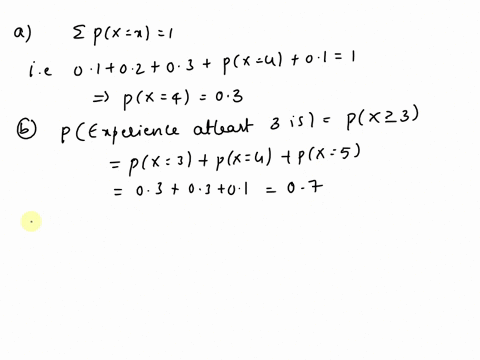 a) Σ p(x=x)=1
i.e 0.1+0.2+0.3+p(x=4)+0.1=1
=> p(x=4)=0.3
b) p(Experience atleast 3 is) = p(x≥3)
= p(x=3)+p(x=4)+p(x=5)
= 0.3+0.3+0.1 = 0.7